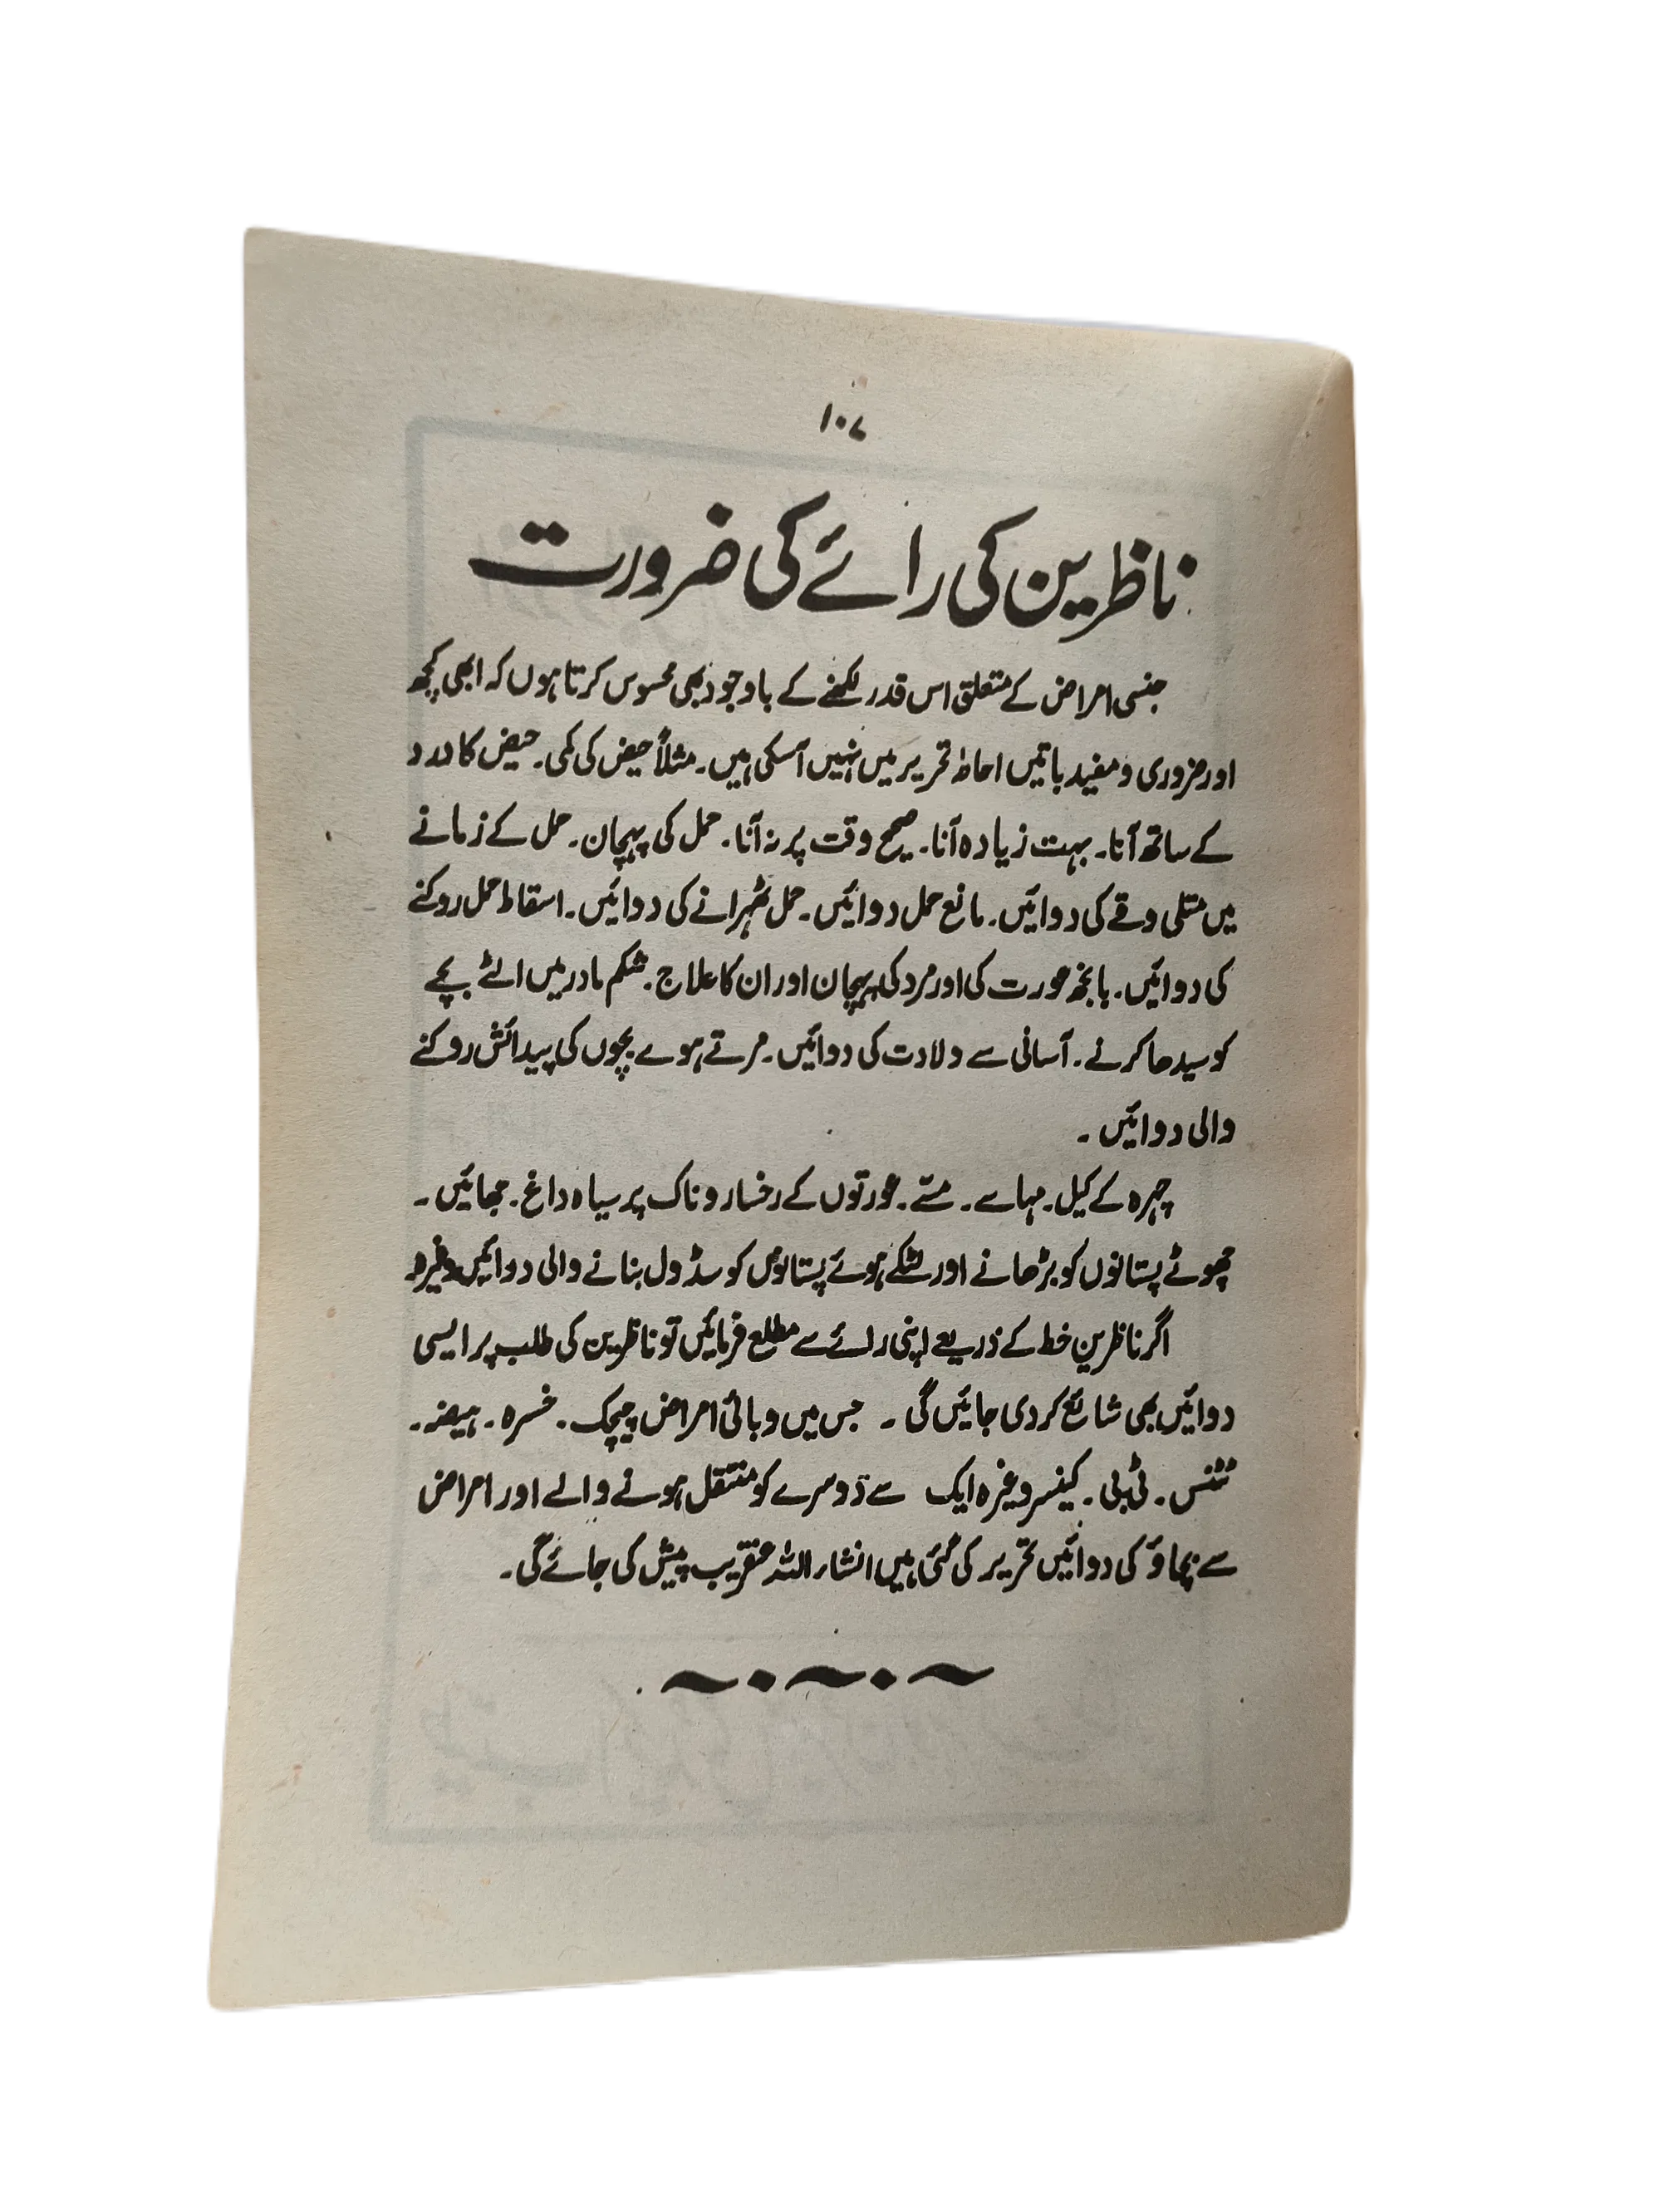 ۱۰۷
ناظرین کی رائے کی ضرورت
جنسی امراض کے متعلق اس قدر لکھنے کے باوجود بھی محسوس کرتا ہوں کہ ابھی کچھ
اور ضروری و مفید باتیں احاطہ تحریر میں نہیں آسکی ہیں۔ مثلاً حیض کی کمی۔ حیض کا درد
کے ساتھ آنا۔ بہت زیادہ آنا۔ صحیح وقت پر نہ آنا۔ حمل کی پہچان۔ حمل کے زمانے
میں متلی و قے کی دوائیں۔ مانع حمل دوائیں۔ حمل ٹھرانے کی دوائیں۔ اسقاط حمل روکنے
کی دوائیں۔ بانجھ عورت کی اور مرد کی پہچان اور ان کا علاج۔ شکم مادر میں الٹے بچے
کو سیدھا کرنے۔ آسانی سے ولادت کی دوائیں۔ مرتے ہوے بچوں کی پیدائش روکنے
والی دوائیں۔
چہرہ کے کیل۔ مہاسے۔ مسّے۔ عورتوں کے رخسار و ناک پر سیاہ داغ۔ جھائیں۔
چھوٹے پستانوں کو بڑھانے اور لٹکے ہوئے پستانوں کو سڈول بنانے والی دوائیں وغیرہ
اگر ناظرین خط کے ذریعے اپنی رائے سے مطلع فرمائیں تو ناظرین کی طلب پر ایسی
دوائیں بھی شائع کر دی جائیں گی ۔ جس میں وبائی امراض چیچک۔ خسرہ۔ ہیضہ۔
ٹٹنس۔ ٹی بی۔ کینسر وغیرہ ایک سے دوسرے کو منتقل ہونے والے اور امراض
سے بچاؤ کی دوائیں تحریر کی گئی ہیں انشاء اللہ عنقریب پیش کی جائے گی۔